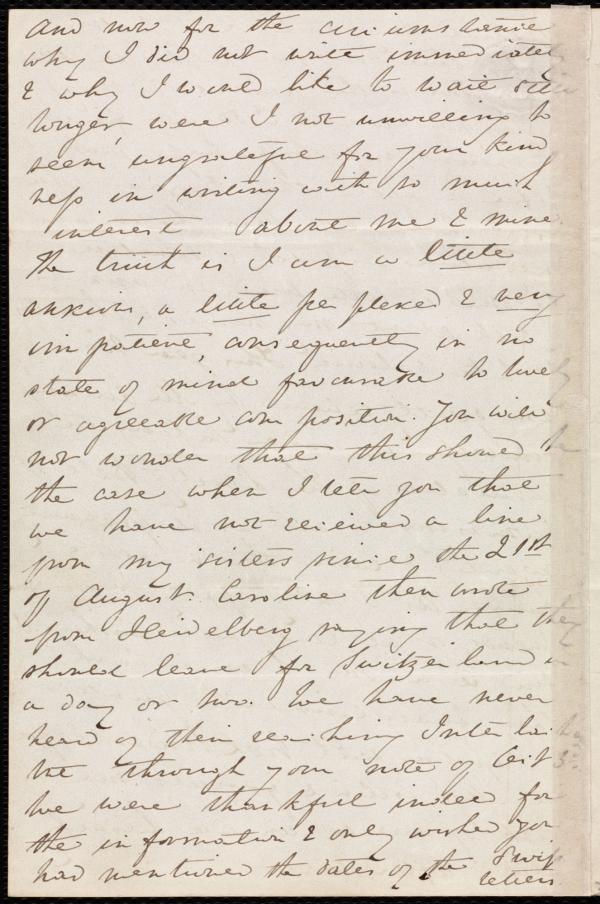 and now for the circumstance
why I did not write immediately
& why I would like to wait still
longer, were I not unwilling to
seem ungrateful for your kind
-ness in writing with so much
interest about me & mine.
The truth is I am a little
anxious, a little perplexed & very
impatient, consequently in no
state of mind favourable to lively
or agreeable composition. You will
not wonder that this should be
the case when I tell you that
we have not received a line
from my sisters since the 21st
of August. Caroline then wrote
from Heidelberg saying that they
should leave for Switzerland in
a day or two. We have never
heard of their reaching Interlachen
but through your note of Oct
We were thankful indeed for
the information & only wished you
had mentioned the dates of the Swiss
letters.